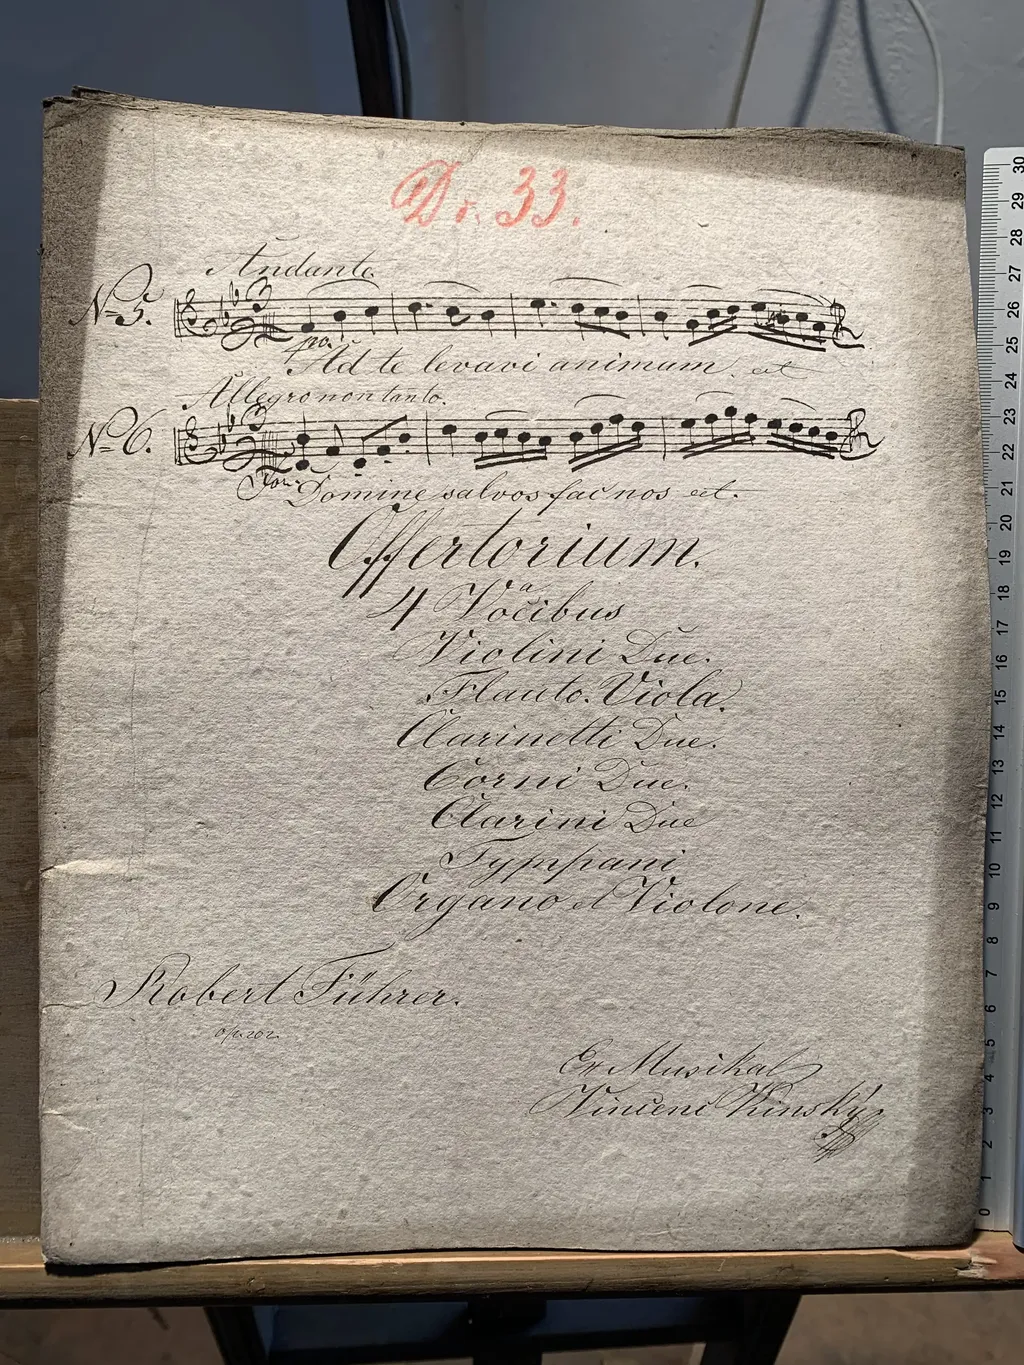 Dr. 33.
Andante
No 5.
po.
Ad te levavi animam. et
Allegro non tanto.
No 6.
For.
Domine salvos fac nos et.
Offertorium.
a
4 Vocibus
Violini Due.
Flauto. Viola.
Clarinetti Due.
Corni Due.
Clarini Due
Tympani
Organo et Violone.
Robert Führer.
op. 202.
Ex Musikal
Vincenc Kinský
30
29
28
27
26
25
24
23
22
21
20
19
18
17
16
15
14
13
12
11
10
9
8
7
6
5
4
3
2
1
0